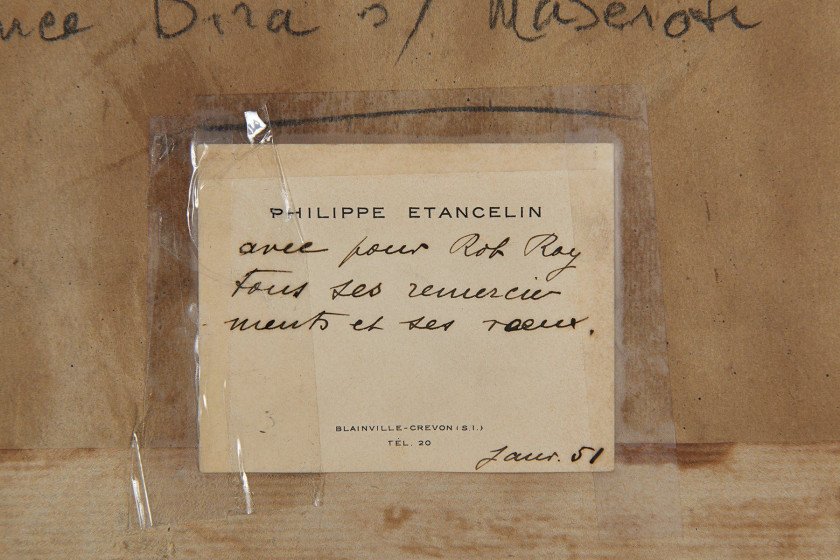 Bira s/ Maserati
PHILIPPE ETANCELIN
avec pour Rob Roy
tous ses remercie
ments et ses vœux.
BLAINVILLE-CREVON (S.I.)
TÉL. 20
Janv. 51